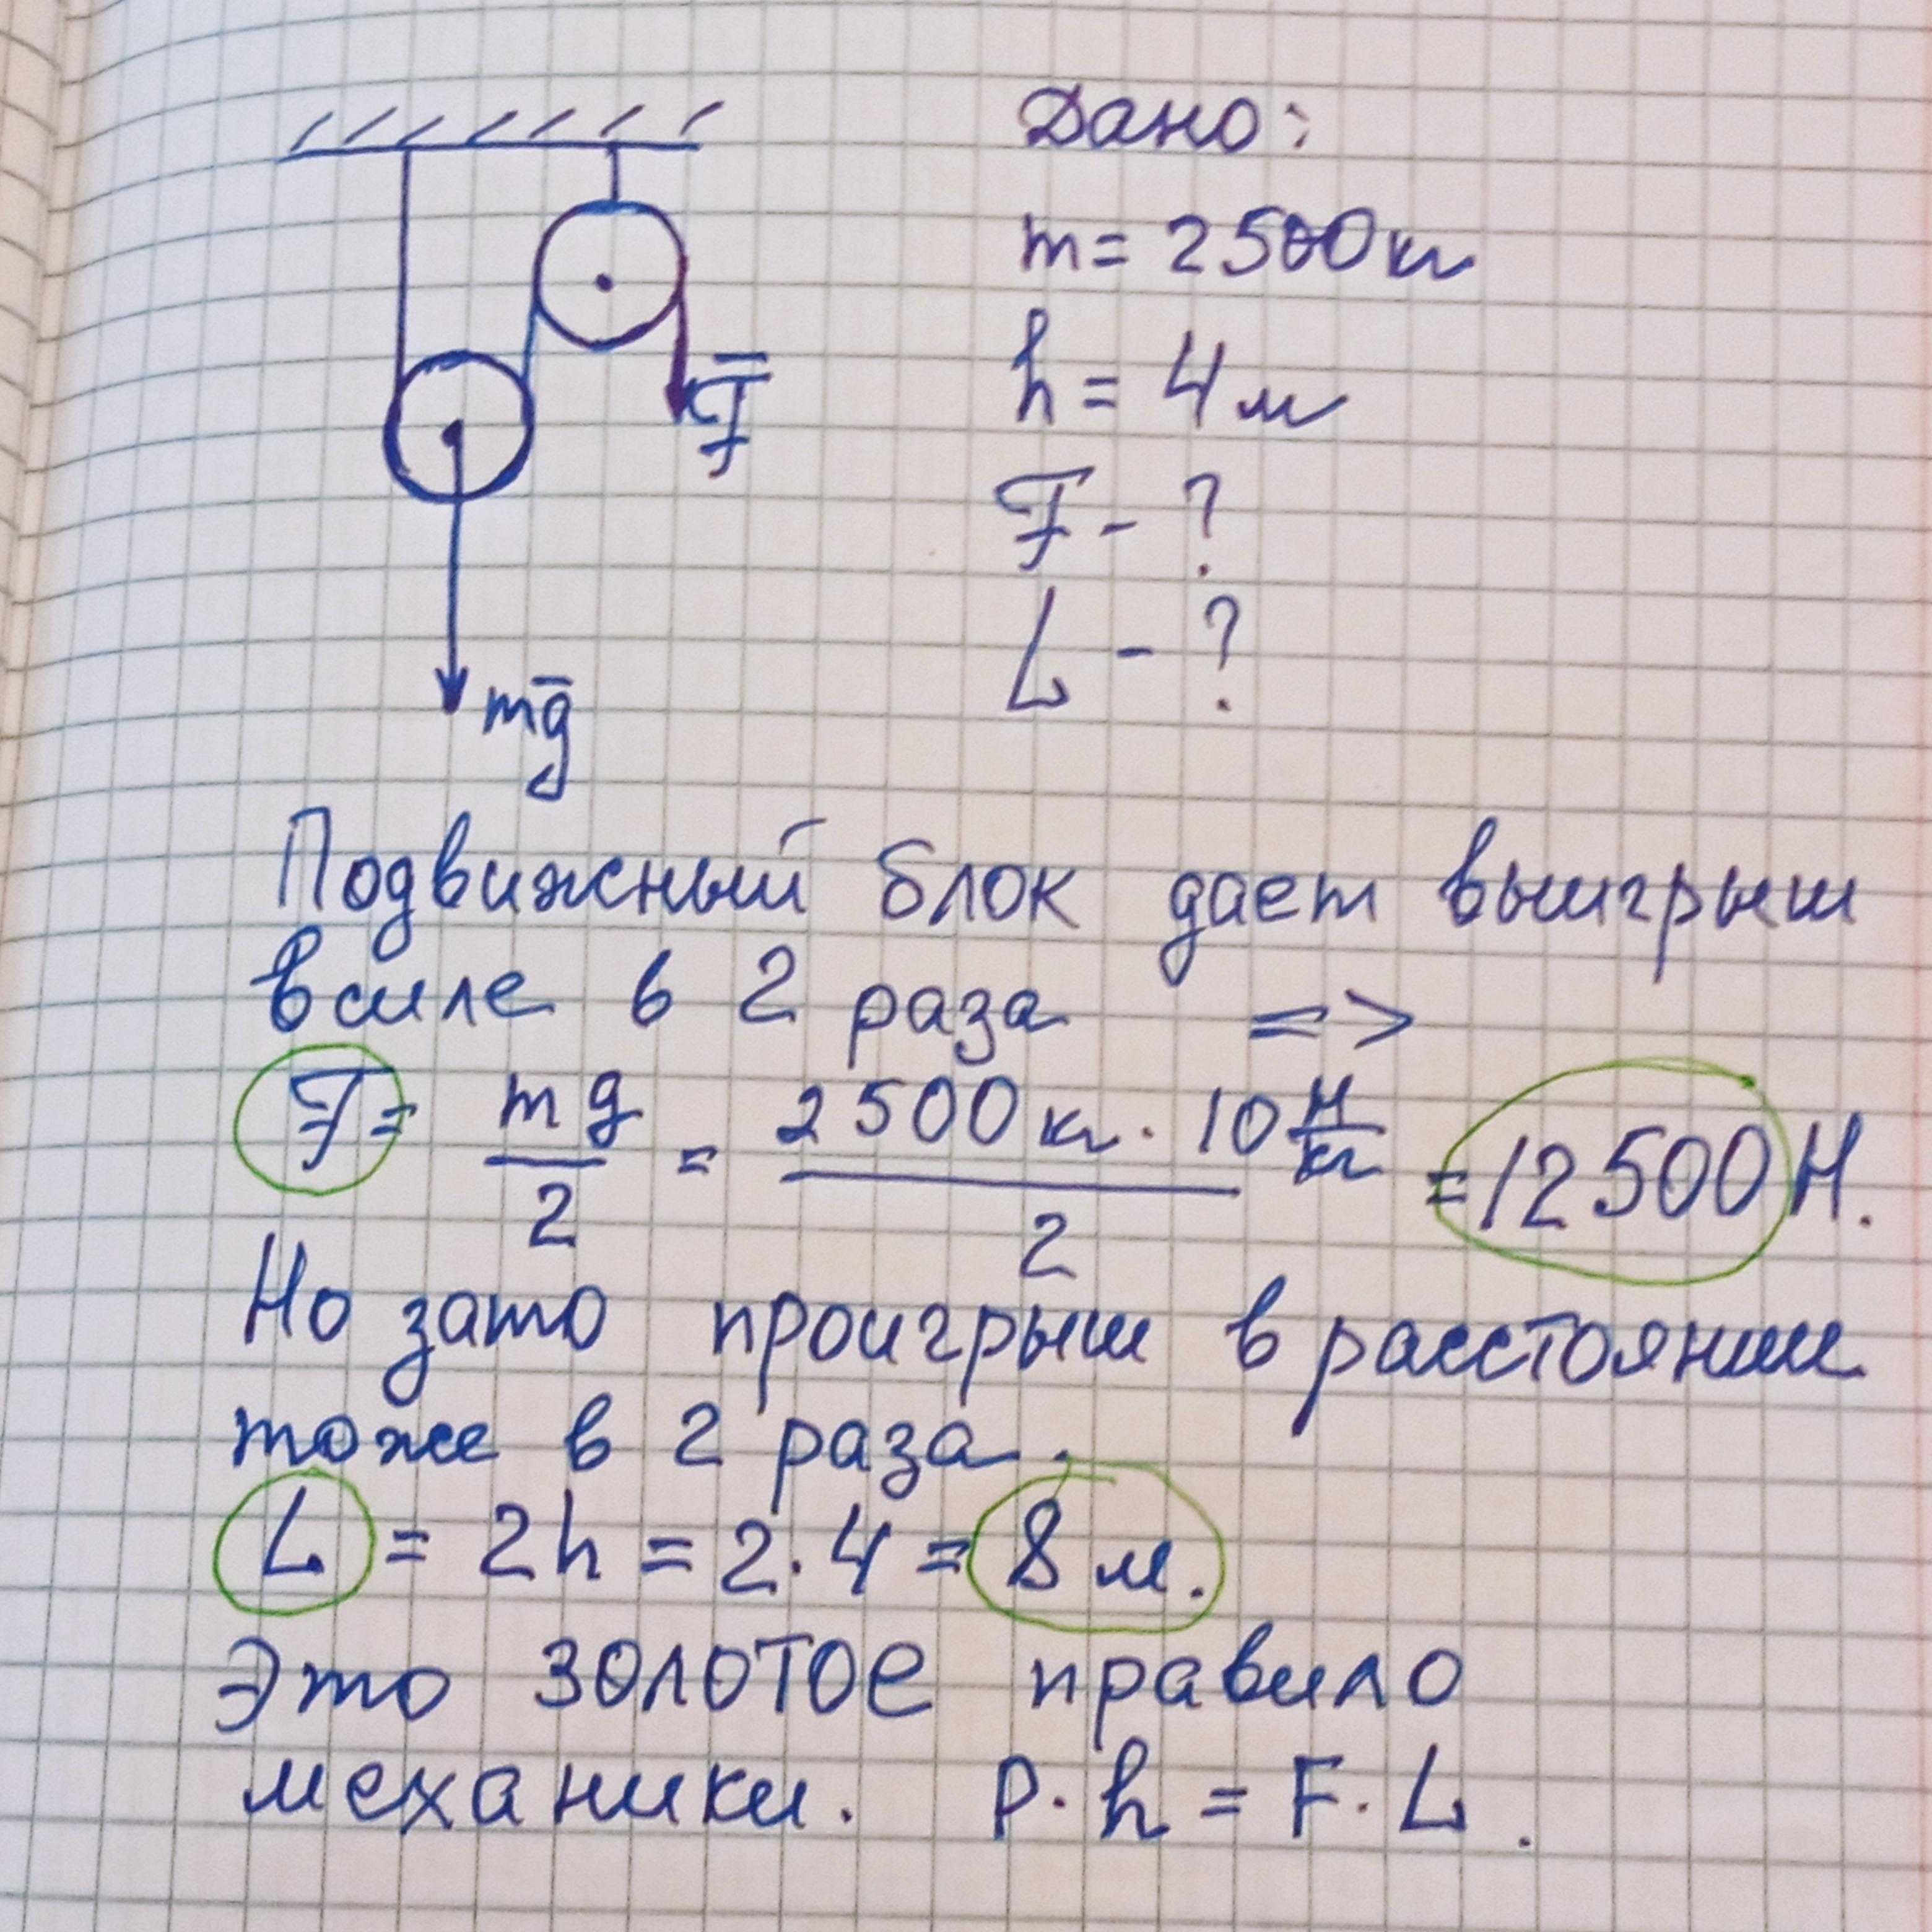 Дано:
m = 2500 кг
h = 4 м
F̄
F - ?
L - ?
mḡ
Подвижный блок дает выигрыш
в силе в 2 раза =>
F = mg/2 = 2500 кг · 10 Н/кг / 2 = 12500 Н.
Но зато проигрыш в расстоянии
тоже в 2 раза.
L = 2h = 2·4 = 8 м.
Это золотое правило
механики. P·h = F·L.